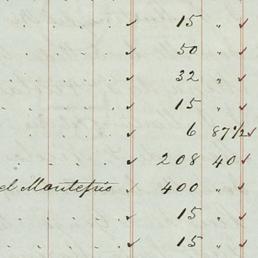 15 "
50 "
32 "
15 "
6 87½
208 40
el Montefrio 400 "
15 "
15 "